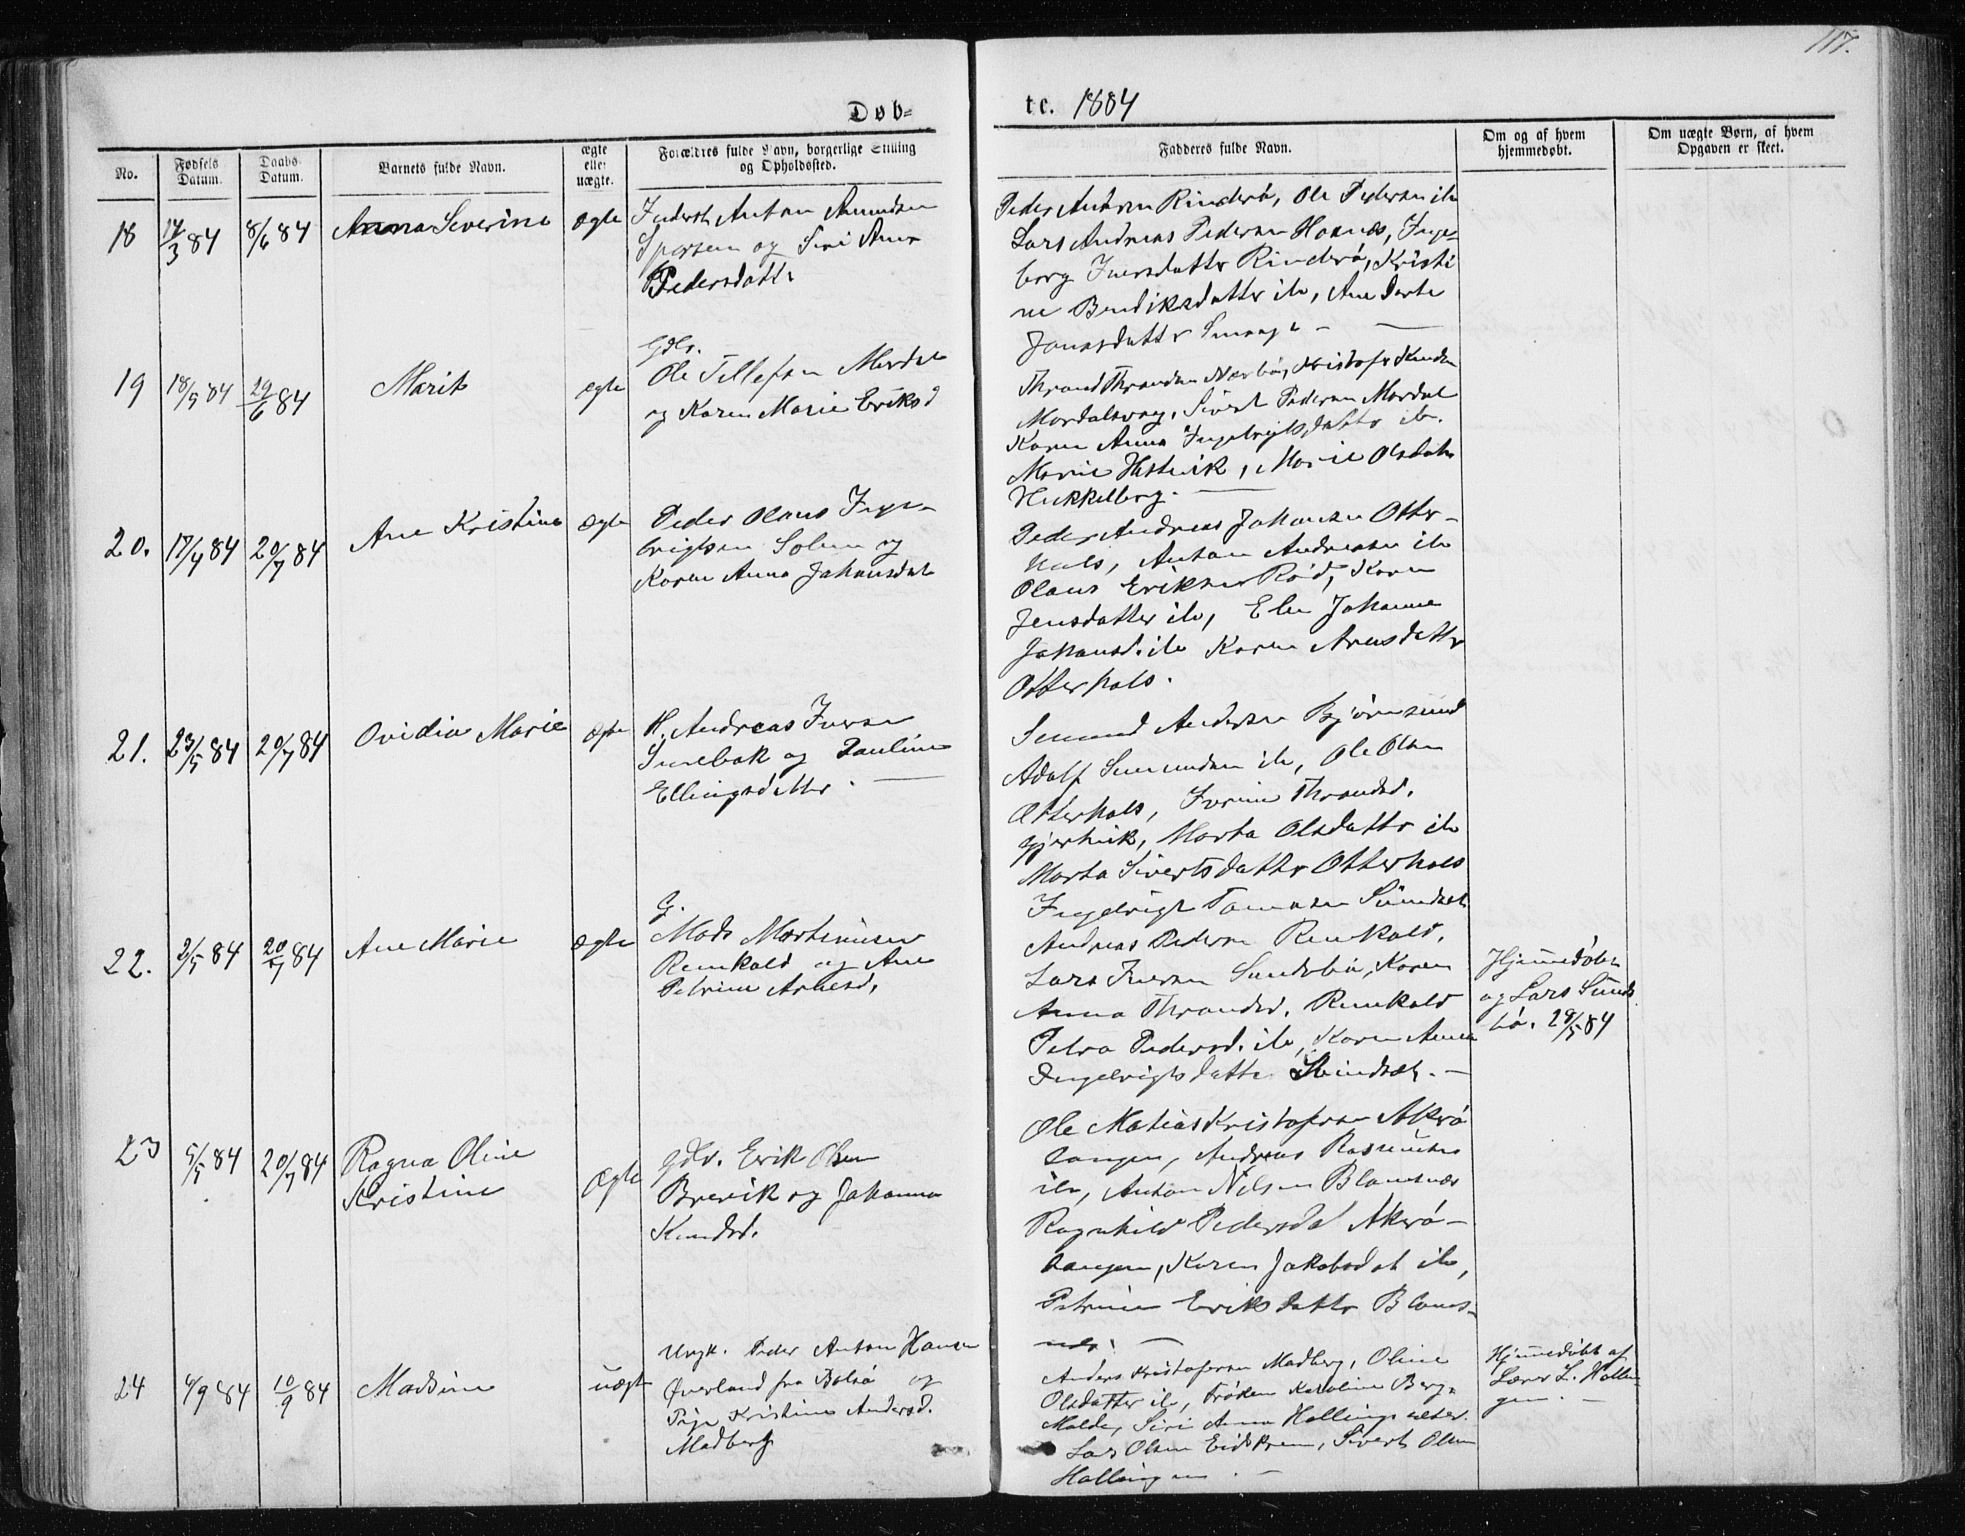 117.
Døb-
te. 1884
No.
Fødsels Datum.
Daabs Datum.
Barnets fulde Navn.
ægte eller uægte.
Forældres fulde Navn, borgerlige Stilling og Opholdssted.
Fadderes fulde Navn.
Om og af hvem hjemmedøbt.
Om uægte Børn, af hvem Opgaven er skeet.
18
14/3 84
8/6 84
Anna Severine
ægte
Inderst Anton Amundsen
og Siri Anna
Pedersdatt.
Peder Antonsen Rinderø, Ole Pedersen ib
Lars Andreas Pedersen Hoenæs, Inge-
borg Iversdatter Rinderø, Kristi
ne Bendiksdatter ib, Ane Dorte
Jonasdatter Smaage -
19
18/5 84
29/6 84
Marit
ægte
Gdbr.
Ole Tellefsen Mordal
og Karen Marie Eriksd
Thrond Throndsen Nerbø, Kristofer Knudsen
Mordalsvag, Sivert Pedersen Mordal
Karen Anna Ingebrigtsdatter ib.
Marie Hestvik, Marie Olsdatter
Hukkelberg. -
20.
17/4 84
20/7 84
Ane Kristine
ægte
Peder Olaus Inge-
brigtsen Solem og
Karen Anna Johansdat
Peder Andreas Johansen Otter-
hals, Anton Andreasen ib
Olaus Eriksen Rød, Karen
Jensdatter ib, Elen Johanne
Johansd. ib Karen Arnesdatter
Otterhals.
21.
23/5 84
20/7 84
Ovidia Marie
ægte
H. Andreas Iversen
og Pauline
Ellingsdatter. -
Simund Andersen Bjørnsund
Adolf Simundsen ib, Ole Olsen
Otterhals, Iverine Throndsd.
Gjershvik, Marta Olsdatter ib
Marta Sivertsdatter Otterhals
22.
2/5 84
20/7 84
Ane Marie
ægte
G.
Mads Martinusen
Reinkald og Ane
Petrine Arnesd.
Ingebrigt Tomasen Sundsæt
Andreas Pedersen Reinkald,
Lars Iversen Sundsbø, Karen
Anna Throndsd. Reinkald
Petra Pedersd. ib, Karen Anna
Ingebrigtsdatter Sundsæt. -
Hjemmedøbt
ag Lars Sunds
bø. 28/5 84
23
5/5 84
20/7 84
Ragna Oline
Kristine
ægte
Gdbr. Erik Olsen
Brevik og Johanna
Knudsd.
Ole Matias Kristofersen Akerø
tangen, Andreas Rasmusen
ib, Anton Nilsen Blomsnæs
Ragnhild Pedersdat Akerø-
tangen, Karen Jakobsdat ib,
Petrine Eriksdatter Bloms-
næs. -
24
4/9 84
10/9 84
Madsine
uægte
Ungk. Peder Anton Hansen
Øverland fra Bolsø og
Pige Kristine Andersd.
Madberg
Anders Kristofersen Madberg, Oline
Olsdatter ib, Frøken Karoline Berg,
Molde, Siri Anna Hollingsæter.
Lars Olsen Eidskrem, Sivert Olsen
Hollingen. -
Hjemmedøbt af
Lærer L. Hollin
gen. -